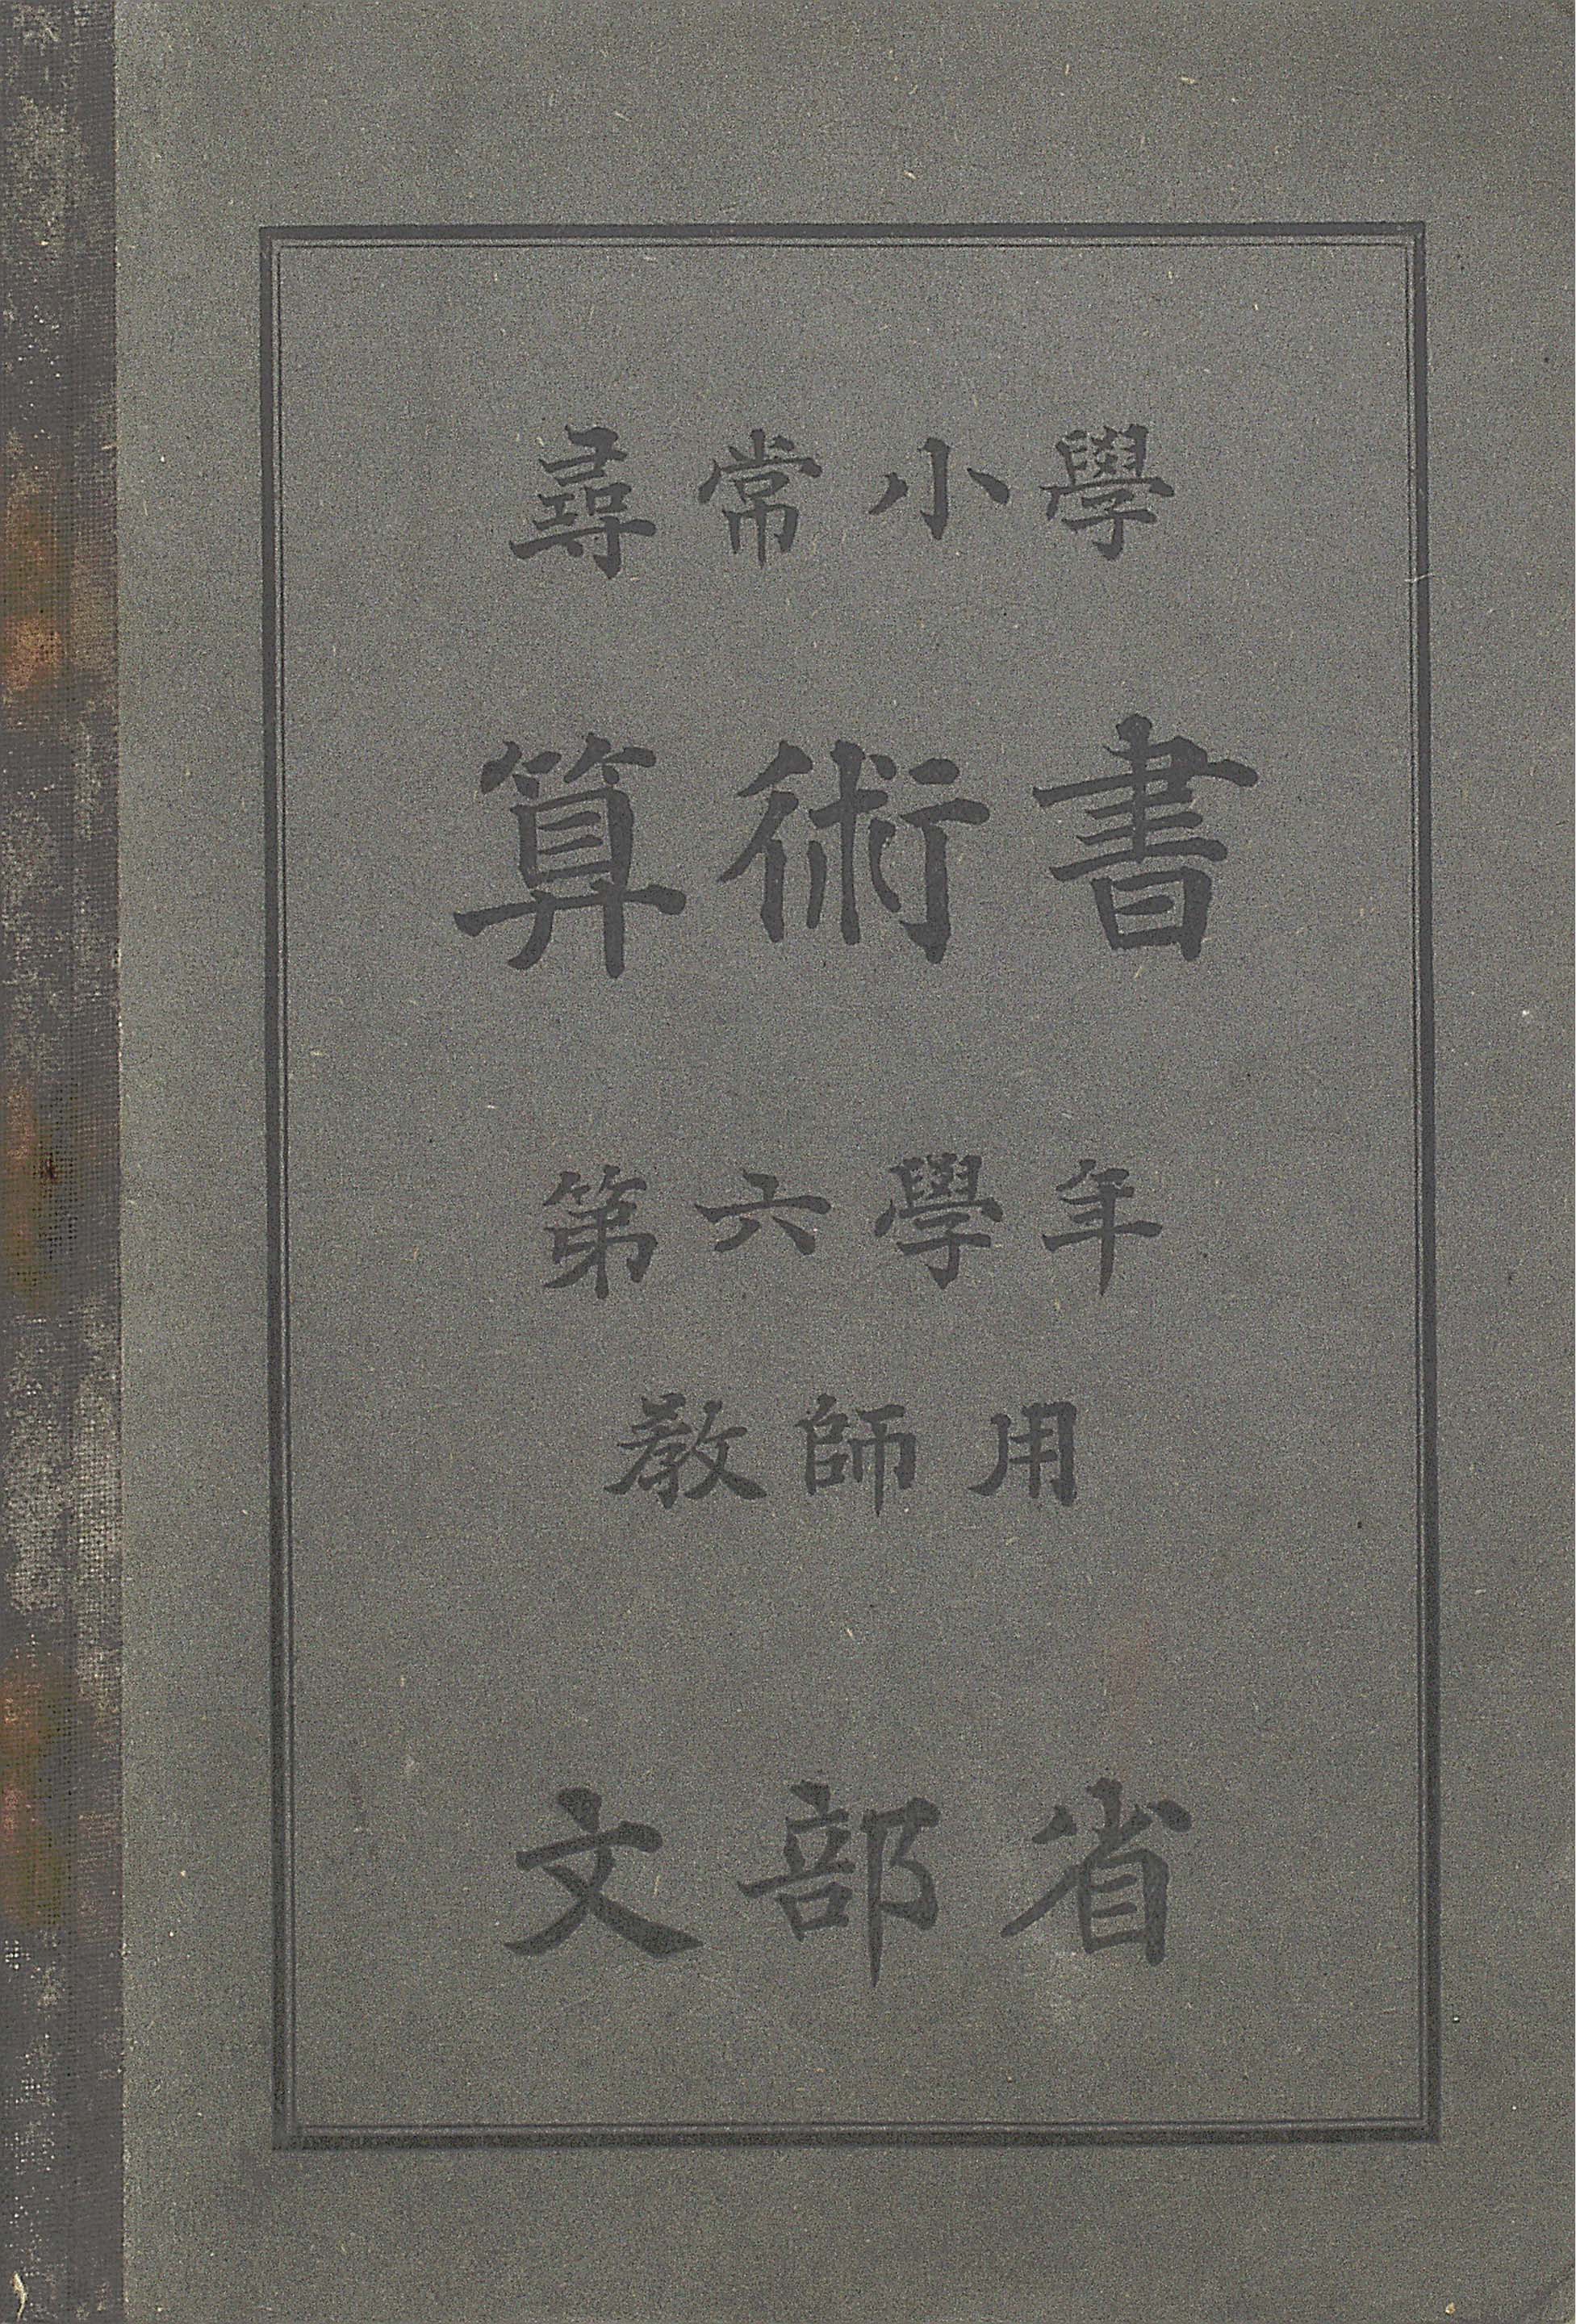 尋常小學
算術書
第六學年
敎師用
文部省